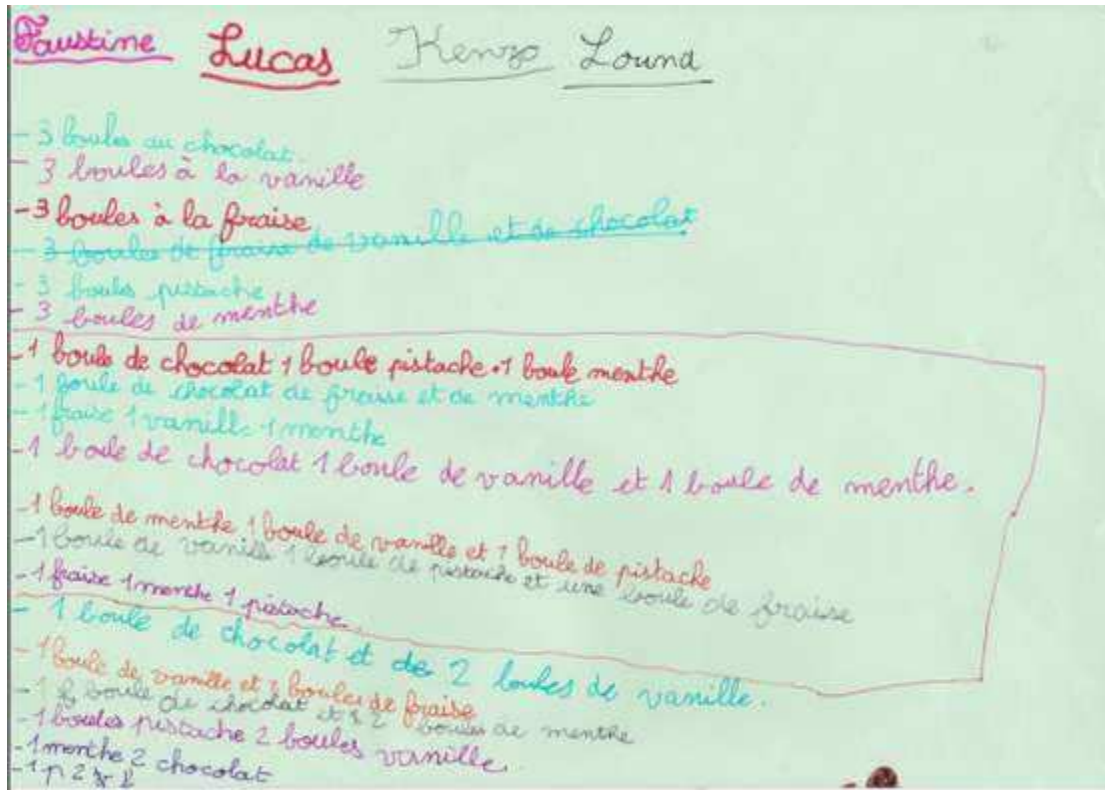 Faustine Lucas Kenzo Louna
- 3 boules au chocolat.
- 3 boules à la vanille
- 3 boules à la fraise
- 3 boules de fraise de vanille et de chocolat
- 3 boules pistache
- 3 boules de menthe
- 1 boule de chocolat 1 boule pistache . 1 boule menthe
- 1 boule de chocolat de fraise et de menthe
- 1 fraise 1 vanille 1 menthe
- 1 boule de chocolat 1 boule de vanille et 1 boule de menthe.
- 1 boule de menthe 1 boule de vanille et 1 boule de pistache
- 1 boule de vanille 1 boule de pistache et une boule de fraise
- 1 fraise 1 menthe 1 pistache
- 1 boule de chocolat et de 2 boules de vanille.
- 1 boule de vanille et 2 boules de fraise
- 1 boule de chocolat et 2 boules de menthe
- 1 boules pistache 2 boules vanille
- 1 menthe 2 chocolat
- 1 p 2